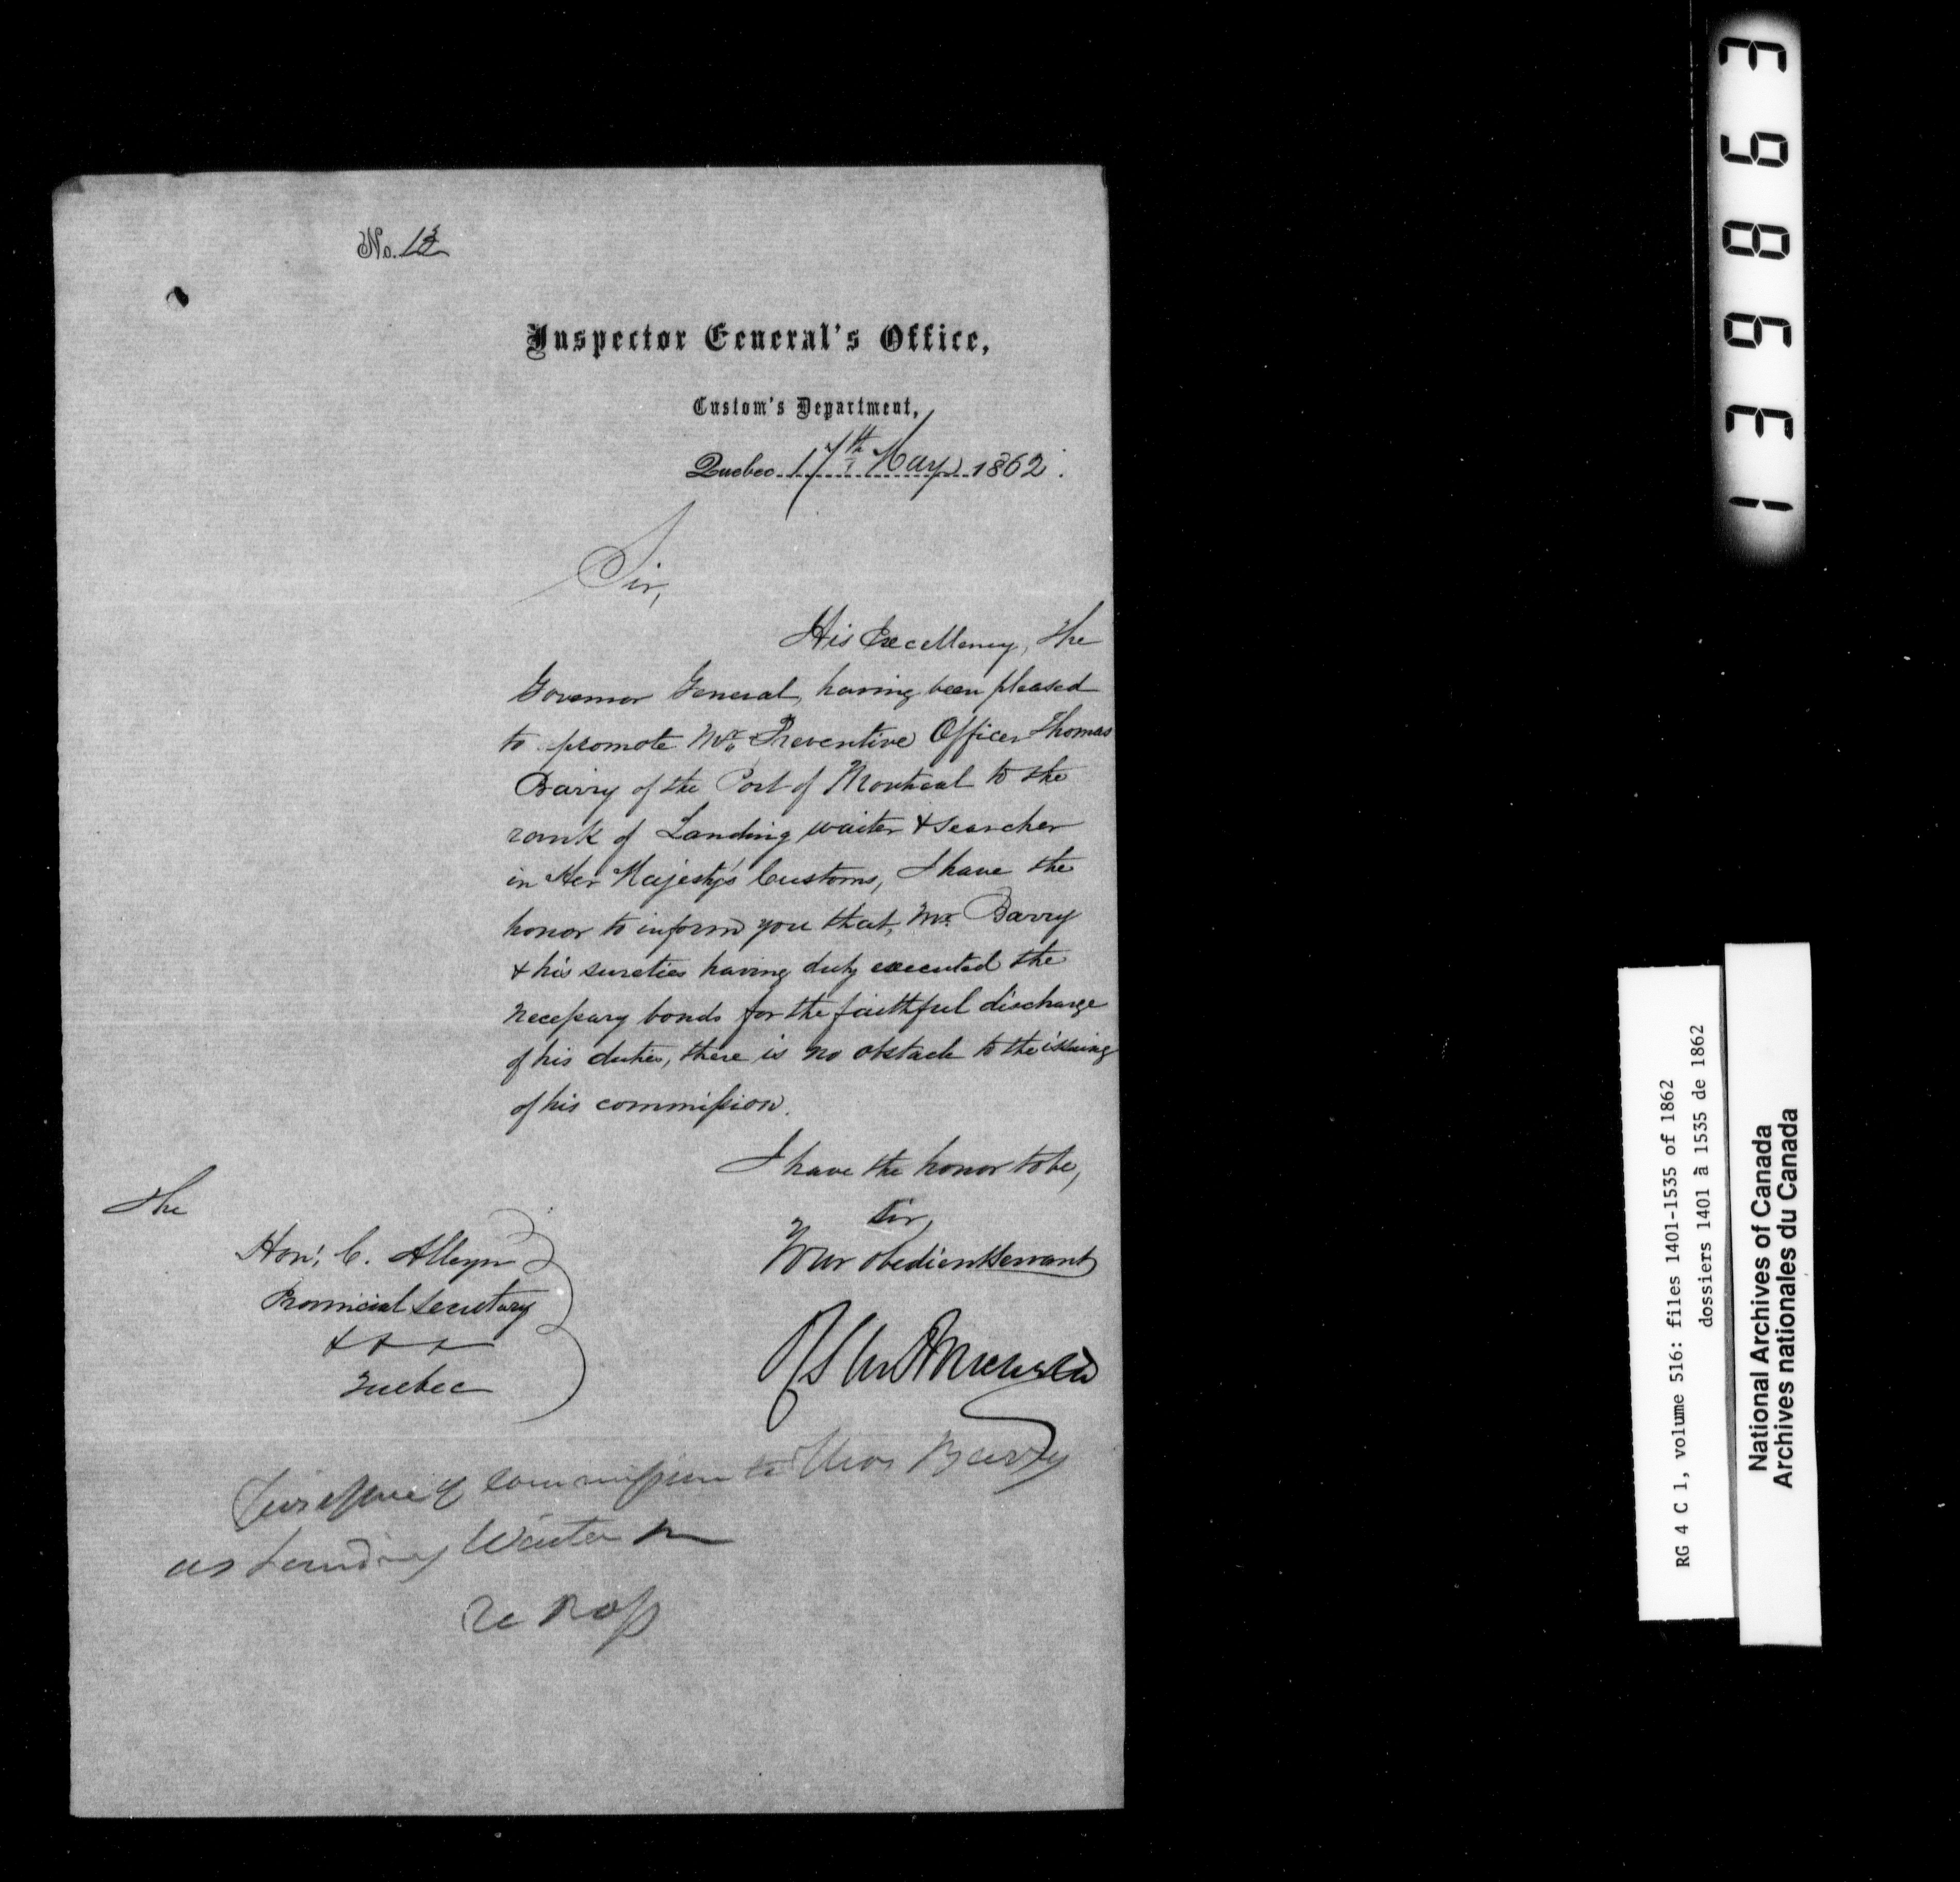 No. 13
Inspector General's Office,
Custom's Department,
Quebec 17th May 1862.
Sir,
His Excellency, the
Governor General, having been pleased
to promote Mr. Preventive Officer Thomas
Barry of the Port of Montreal to the
rank of Landing waiter & searcher
in Her Majesty's Customs, I have the
honor to inform you that, Mr. Barry
& his sureties having duly executed the
necessary bonds for the faithful discharge
of his duties, there is no obstacle to the issuing
of his commission.
I have the honor to be,
Sir,
Your obedient servant
The
Hon. C. Alleyn
Provincial Secretary
& & &
Quebec
commission to Thos Barry
as Landing Waiter
139863
RG 4 C 1, volume 516: files 1401-1535 of 1862
dossiers 1401 à 1535 de 1862
National Archives of Canada
Archives nationales du Canada